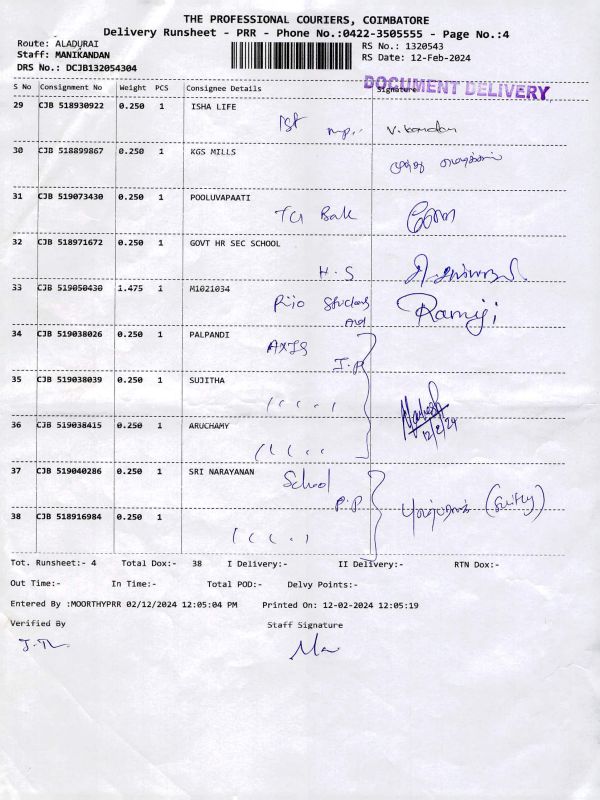 THE PROFESSIONAL COURIERS, COIMBATORE
Delivery Runsheet - PRR - Phone No.:0422-3505555 - Page No.:4
Route: ALADURAI
RS No.: 1320543
Staff: MANIKANDAN
RS Date: 12-Feb-2024
DRS No.: DCJB132054304
DOCUMENT DELIVERY
S No Consignment No Weight PCS Consignee Details Signature
29 CJB 518930922 0.250 1 ISHA LIFE
30 CJB 518899867 0.250 1 KGS MILLS
31 CJB 519073430 0.250 1 POOLUVAPAATI
32 CJB 518971672 0.250 1 GOVT HR SEC SCHOOL
H.S
33 CJB 519050430 1.475 1 M1021034
Ramji
34 CJB 519038026 0.250 1 PALPANDI
AXIS
35 CJB 519038039 0.250 1 SUJITHA
12/2/24
36 CJB 519038415 0.250 1 ARUCHAMY
37 CJB 519040286 0.250 1 SRI NARAYANAN
School
P.P
38 CJB 518916984 0.250 1
Tot. Runsheet:- 4 Total Dox:- 38 I Delivery:- II Delivery:- RTN Dox:-
Out Time:- In Time:- Total POD:- Delvy Points:-
Entered By :MOORTHYPRR 02/12/2024 12:05:04 PM Printed On: 12-02-2024 12:05:19
Verified By Staff Signature